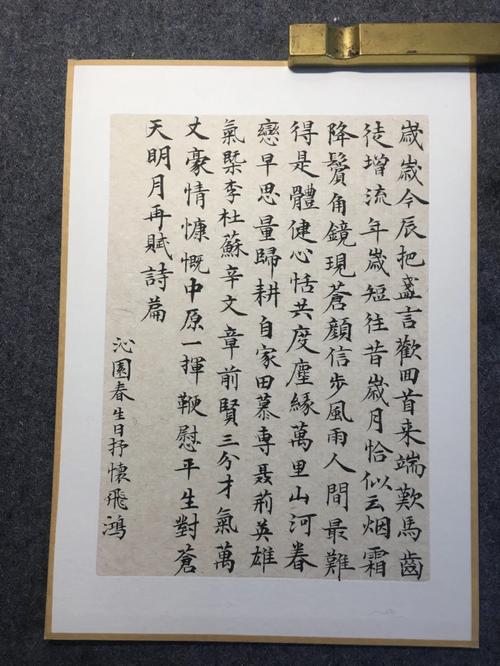 歲歲今辰把盞言歡回首来端歎馬齒
徒增流年歲短往昔歲月恰似云烟霜
降鬢角鏡現蒼顏信步風雨人間最難
得是體健心恬共度塵緣萬里山河眷
戀早思量歸耕自家田慕專聂荊英雄
氣槩李杜蘇辛文章前賢三分才氣萬
丈豪情慷慨中原一揮鞭慰平生對蒼
天明月再賦詩篇
沁園春生日抒懷飛鴻